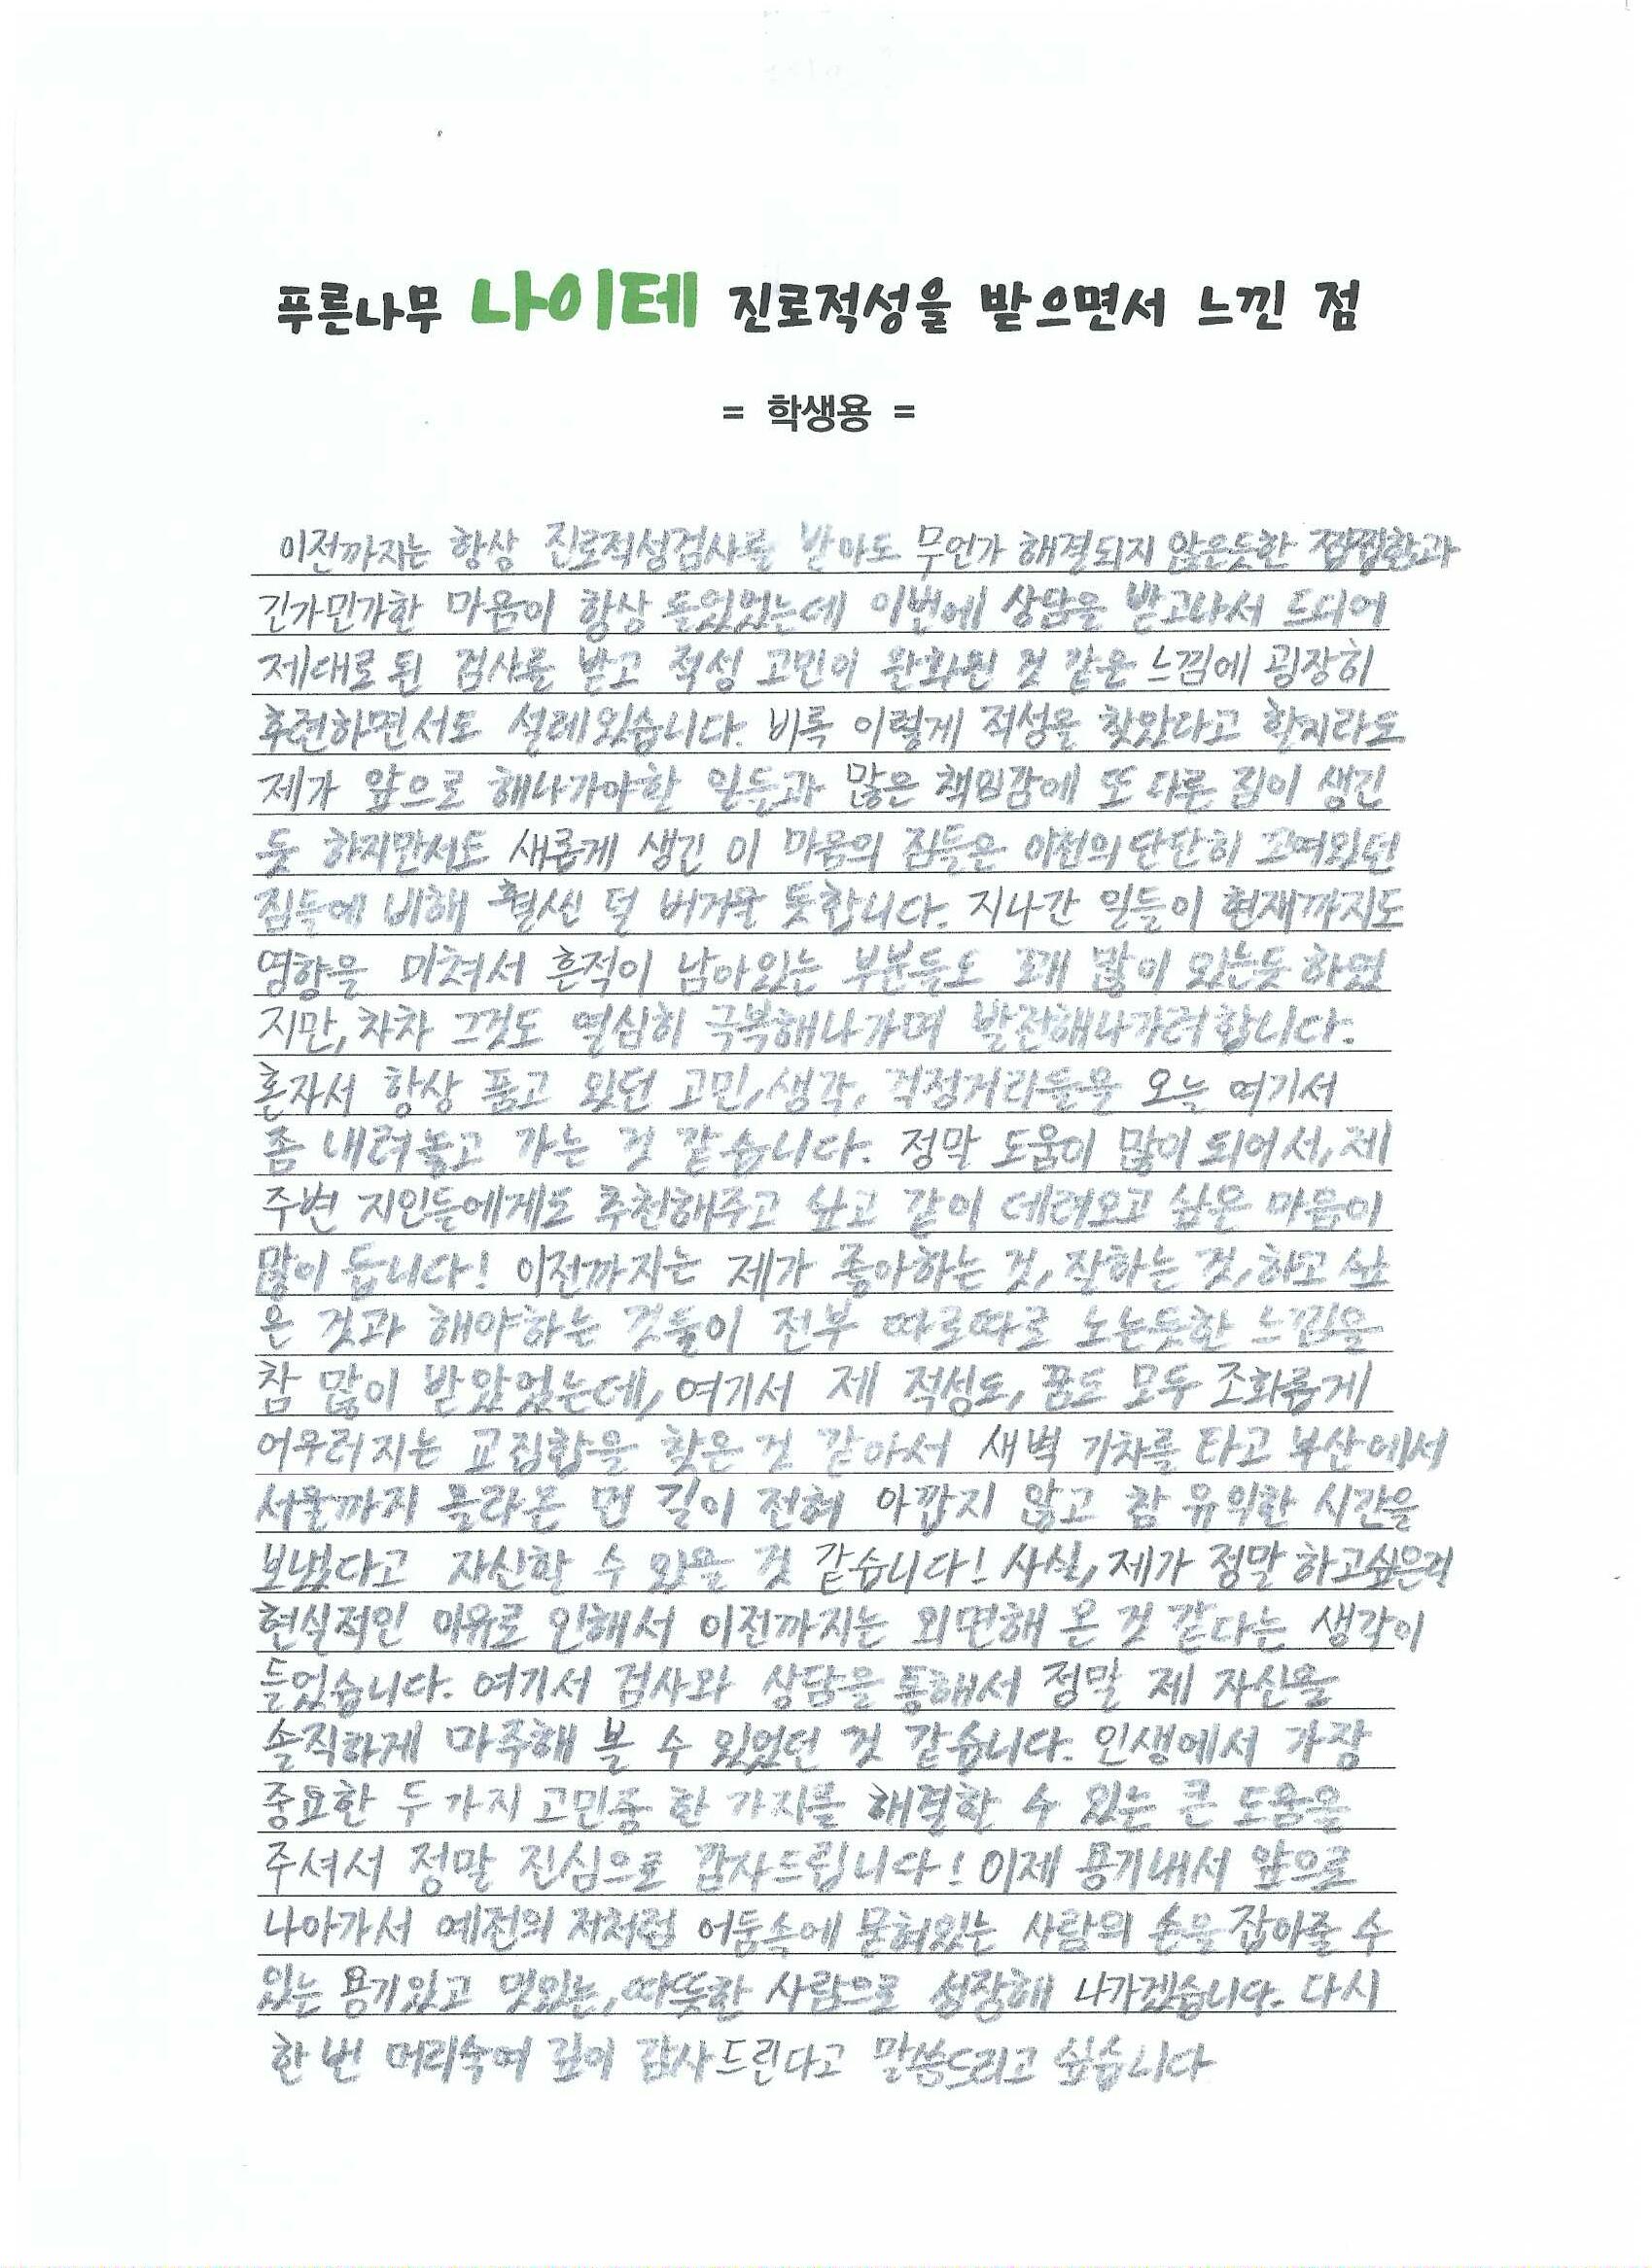 푸른나무 나이테 진로적성을 받으면서 느낀 점
= 학생용 =
이전까지는 항상 진로적성검사를 받아도 무언가 해결되지 않은듯한 찝찝함과
긴가민가한 마음이 항상 들었었는데 이번에 상담을 받고나서 드디어
제대로 된 검사를 받고 적성 고민이 완화된 것 같은 느낌에 굉장히
후련하면서도 설레었습니다. 비록 이렇게 적성을 찾았다고 할지라도
제가 앞으로 해나가야할 일들과 많은 책임감에 또 다른 짐이 생긴
듯 하지만서도 새롭게 생긴 이 마음의 짐들은 이전의 단단히 꼬여있던
짐들에 비해 훨씬 덜 버거울 듯합니다. 지나간 일들이 현재까지도
영향을 미쳐서 흔적이 남아있는 부분들도 꽤 많이 있는듯 하였
지만, 차차 그것도 열심히 극복해나가며 발전해나가려합니다.
혼자서 항상 품고 있던 고민, 생각, 걱정거리들을 오늘 여기서
좀 내려놓고 가는 것 같습니다. 정말 도움이 많이 되어서, 제
주변 지인들에게도 추천해주고 싶고 같이 데려오고 싶은 마음이
많이 듭니다! 이전까지는 제가 좋아하는 것, 잘하는 것, 하고 싶
은 것과 해야하는 것들이 전부 따로따로 노는듯한 느낌을
참 많이 받았었는데, 여기서 제 적성도, 꿈도 모두 조화롭게
어우러지는 교집합을 찾은 것 같아서 새벽 기차를 타고 부산에서
서울까지 올라온 먼 길이 전혀 아깝지 않고 참 유익한 시간을
보냈다고 자신할 수 있을 것 같습니다! 사실, 제가 정말 하고싶은걸
현실적인 이유로 인해서 이전까지는 외면해 온 것 같다는 생각이
들었습니다. 여기서 검사와 상담을 통해서 정말 제 자신을
솔직하게 마주해 볼 수 있었던 것 같습니다. 인생에서 가장
중요한 두가지 고민중 한 가지를 해결할 수 있는 큰 도움을
주셔서 정말 진심으로 감사드립니다! 이제 용기내서 앞으로
나아가서 예전의 저처럼 어둠속에 묻혀있는 사람의 손을 잡아줄 수
있는 용기있고 멋있는, 따뜻한 사람으로 성장해 나가겠습니다. 다시
한 번 머리숙여 깊이 감사드린다고 말씀드리고 싶습니다